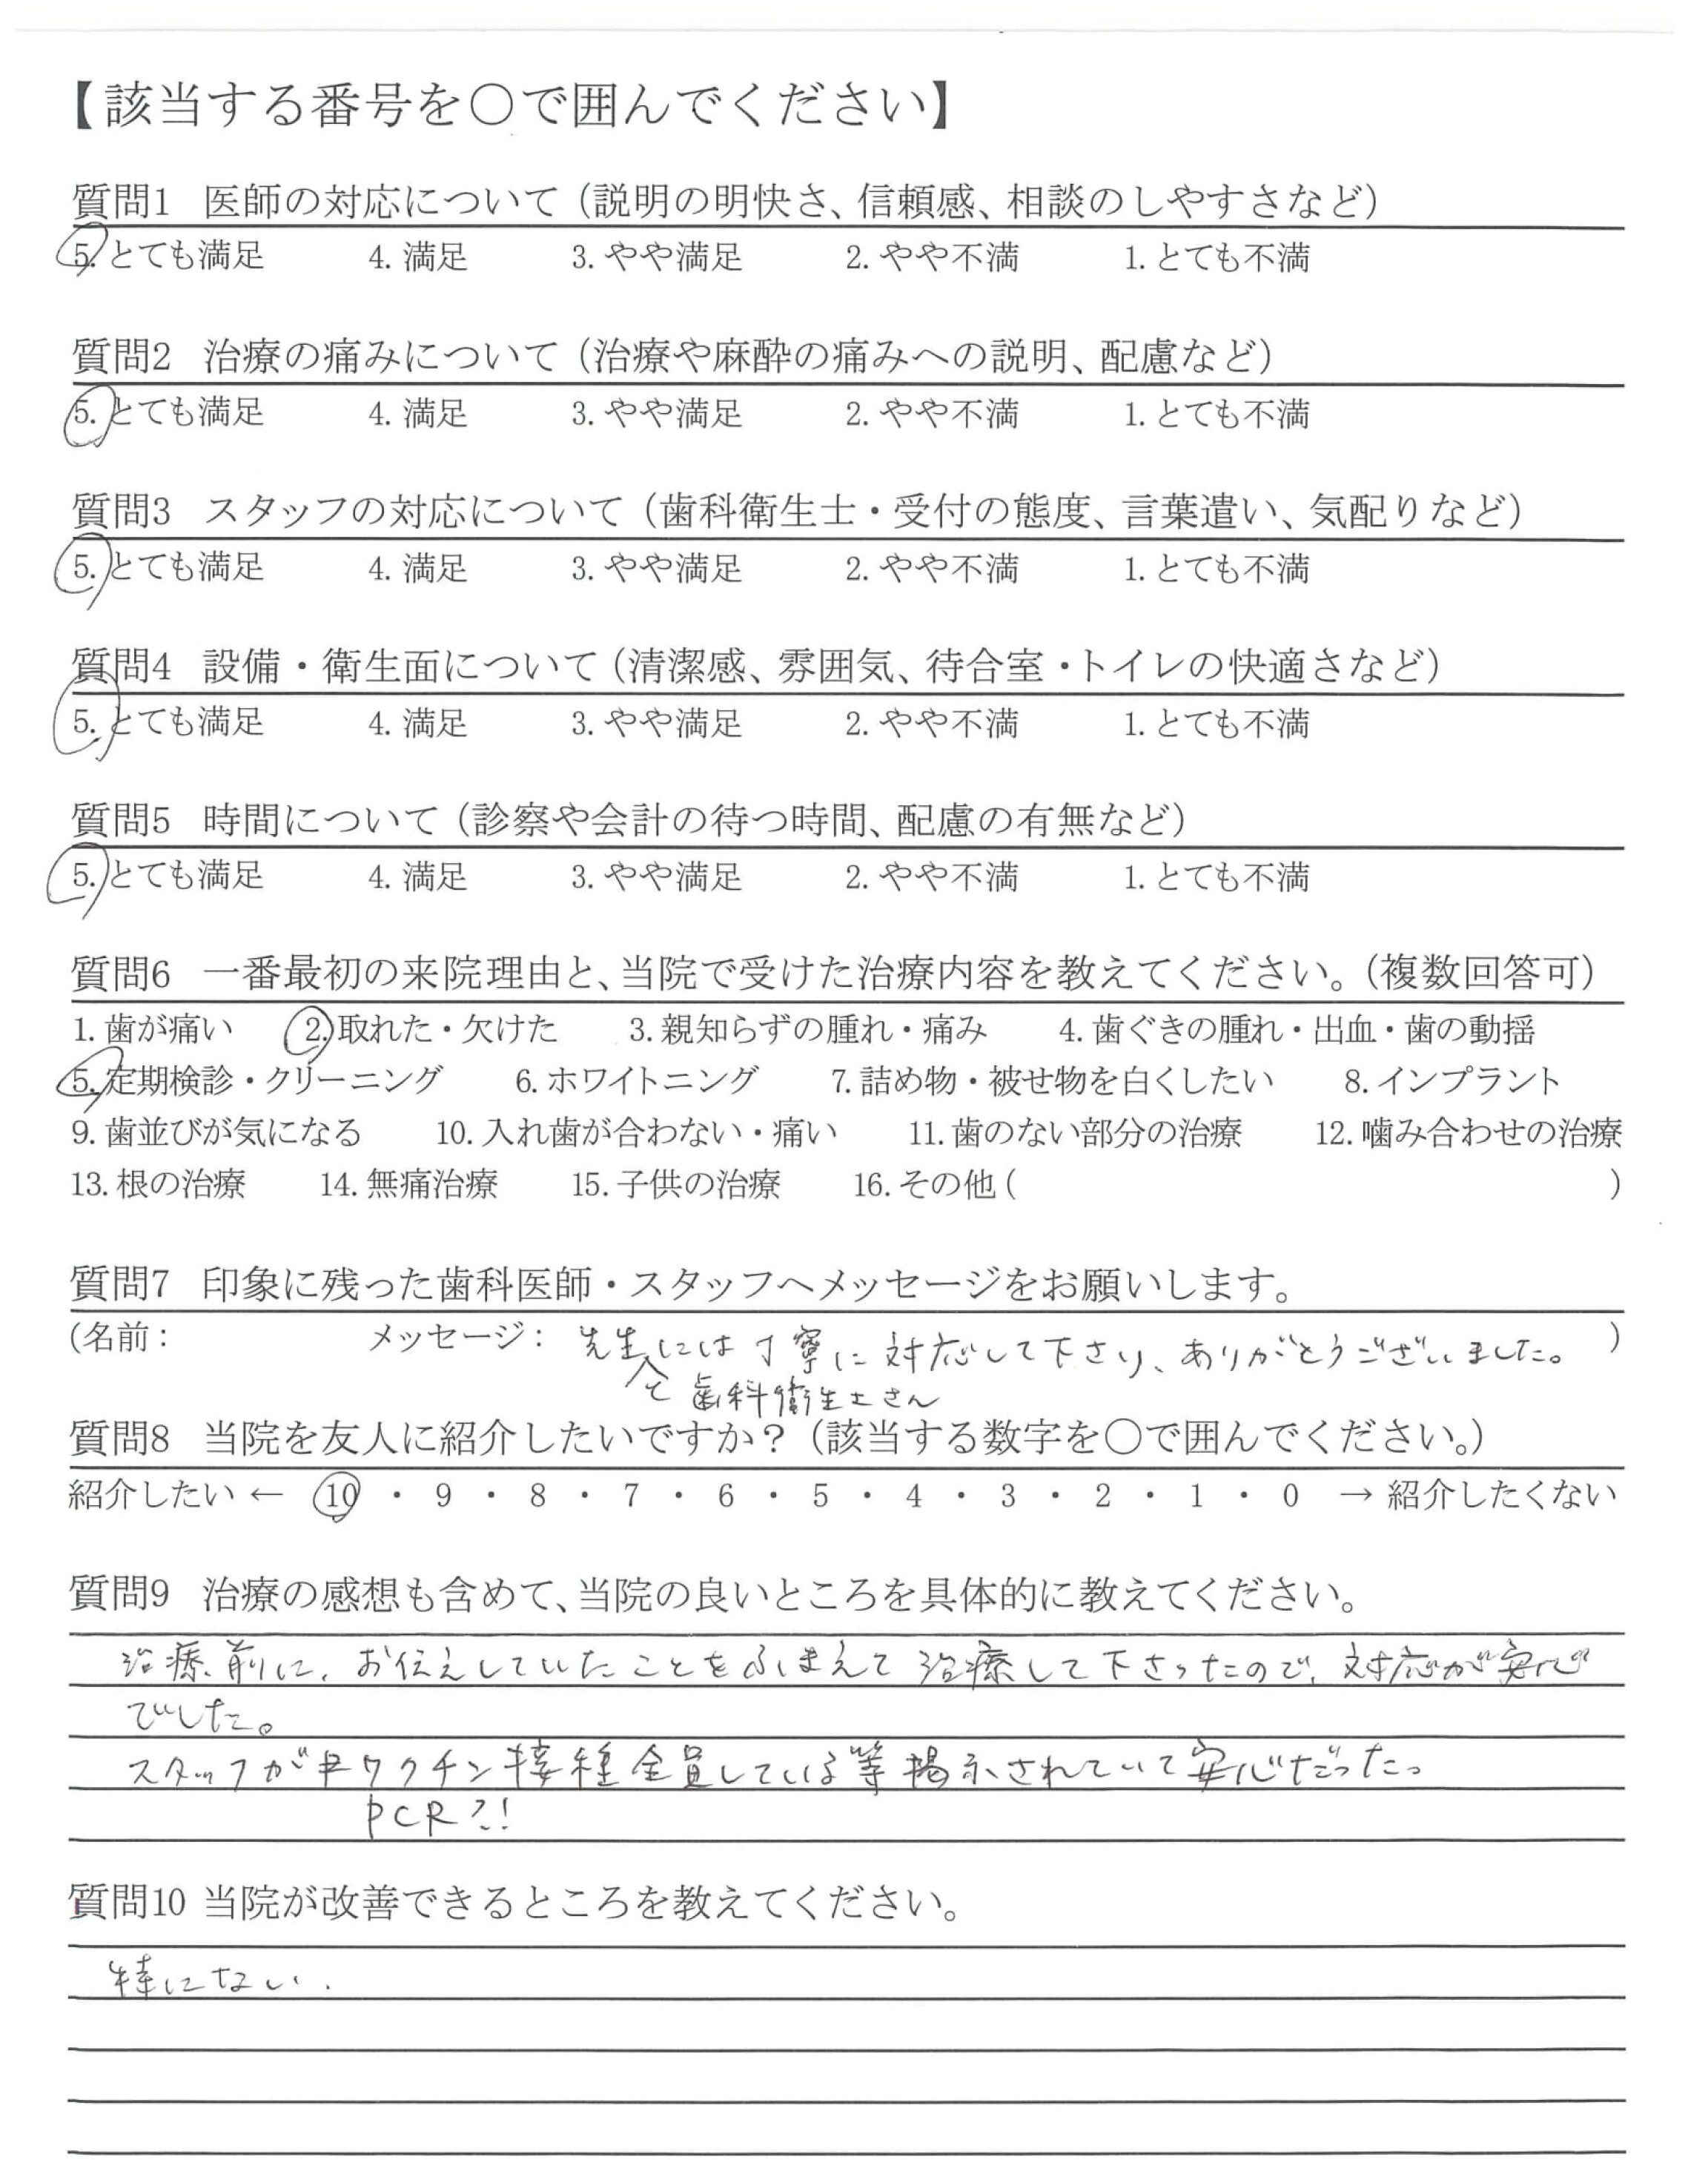 【該当する番号を〇で囲んでください】
質問1 医師の対応について（説明の明快さ、信頼感、相談のしやすさなど）
5. とても満足 4. 満足 3. やや満足 2. やや不満 1. とても不満
質問2 治療の痛みについて（治療や麻酔の痛みへの説明、配慮など）
5. とても満足 4. 満足 3. やや満足 2. やや不満 1. とても不満
質問3 スタッフの対応について（歯科衛生士・受付の態度、言葉遣い、気配りなど）
5. とても満足 4. 満足 3. やや満足 2. やや不満 1. とても不満
質問4 設備・衛生面について（清潔感、雰囲気、待合室・トイレの快適さなど）
5. とても満足 4. 満足 3. やや満足 2. やや不満 1. とても不満
質問5 時間について（診察や会計の待つ時間、配慮の有無など）
5. とても満足 4. 満足 3. やや満足 2. やや不満 1. とても不満
質問6 一番最初の来院理由と、当院で受けた治療内容を教えてください。（複数回答可）
1. 歯が痛い 2. 取れた・欠けた 3. 親知らずの腫れ・痛み 4. 歯ぐきの腫れ・出血・歯の動揺
5. 定期検診・クリーニング 6. ホワイトニング 7. 詰め物・被せ物を白くしたい 8. インプラント
9. 歯並びが気になる 10. 入れ歯が合わない・痛い 11. 歯のない部分の治療 12. 噛み合わせの治療
13. 根の治療 14. 無痛治療 15. 子供の治療 16. その他（ ）
質問7 印象に残った歯科医師・スタッフへメッセージをお願いします。
（名前： メッセージ： 先生には丁寧に対応して下さり、ありがとうございました。 ）
と歯科衛生士さん
質問8 当院を友人に紹介したいですか？（該当する数字を〇で囲んでください。）
紹介したい ← 10 ・ 9 ・ 8 ・ 7 ・ 6 ・ 5 ・ 4 ・ 3 ・ 2 ・ 1 ・ 0 → 紹介したくない
質問9 治療の感想も含めて、当院の良いところを具体的に教えてください。
治療前に、お伝えしていたことをふまえて治療して下さったので、対応が安心
でした。
スタッフがワクチン接種全員している等掲示されていて安心だった。
PCR?!
質問10 当院が改善できるところを教えてください。
特にない.